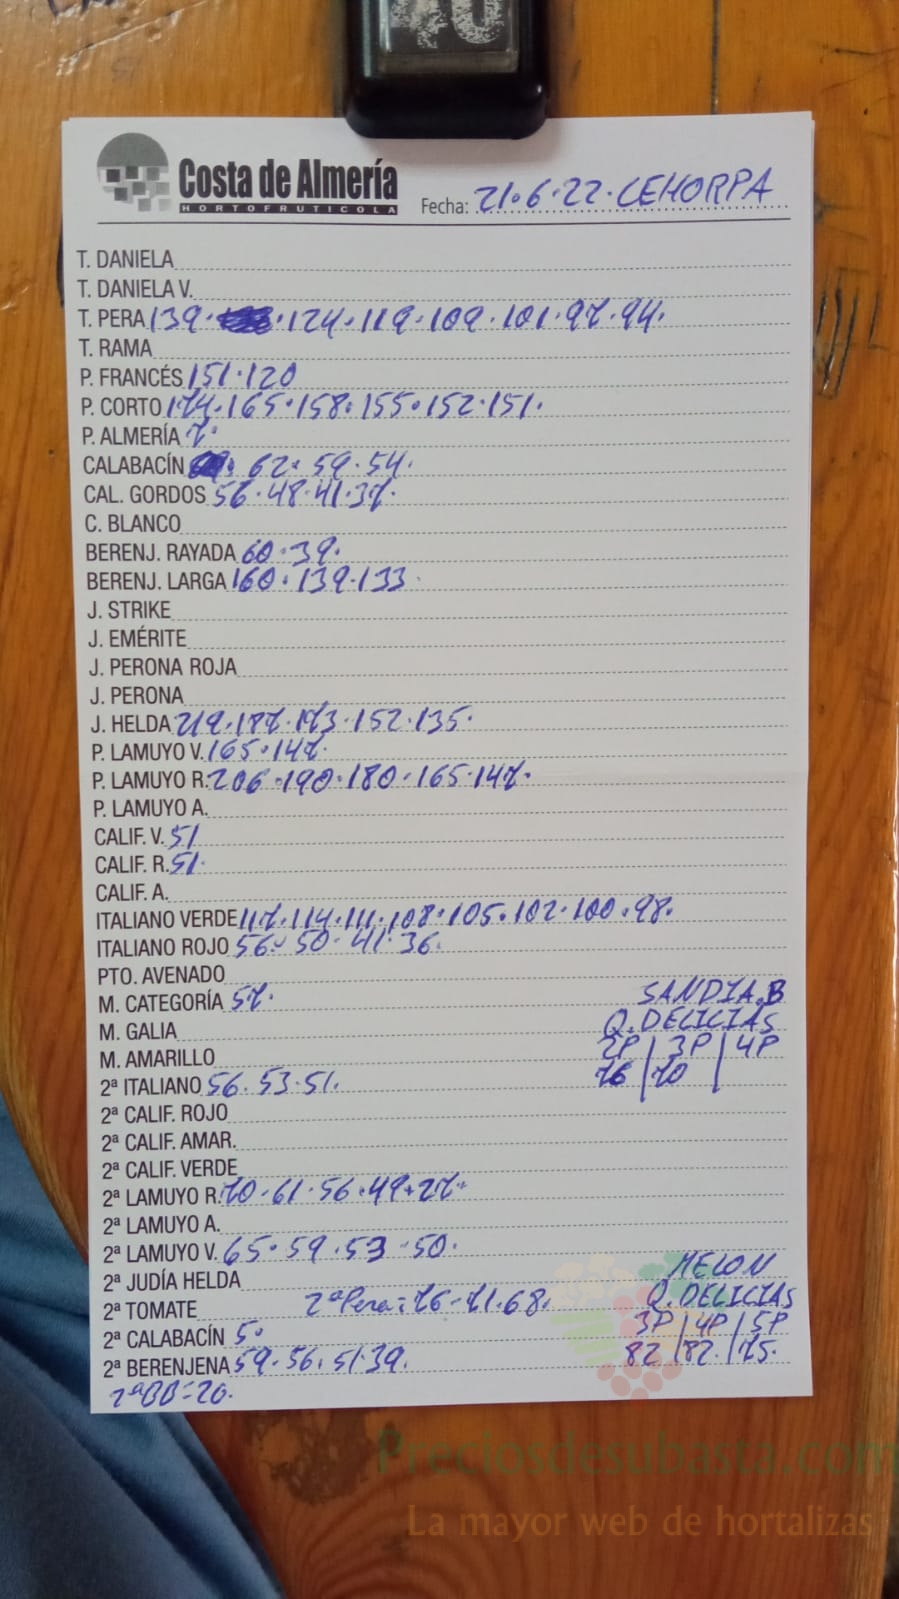 Costa de Almería
HORTOFRUTICOLA
Fecha: 21.6.22. CEHORPA
T. DANIELA
T. DANIELA V.
T. PERA 139. . 124. 119. 109. 101. 97. 94.
T. RAMA
P. FRANCÉS 151. 120
P. CORTO 174. 165. 158. 155. 152. 151.
P. ALMERÍA 7.
CALABACÍN . 62. 59. 54.
CAL. GORDOS 56. 48. 41. 37.
C. BLANCO
BERENJ. RAYADA 60. 39.
BERENJ. LARGA 160. 139. 133
J. STRIKE
J. EMÉRITE
J. PERONA ROJA
J. PERONA
J. HELDA 219. 187. 173. 152. 135.
P. LAMUYO V. 165. 147.
P. LAMUYO R. 206. 190. 180. 165. 147.
P. LAMUYO A.
CALIF. V. 51
CALIF. R. 51.
CALIF. A.
ITALIANO VERDE 117. 114. 111. 108. 105. 102. 100. 98.
ITALIANO ROJO 56. 50. 41. 36.
PTO. AVENADO
M. CATEGORÍA 57. SANDIA.B
M. GALIA Q. DELICIAS
M. AMARILLO 2P | 3P | 4P
2ª ITALIANO 56. 53. 51. 76 | 70 |
2ª CALIF. ROJO
2ª CALIF. AMAR.
2ª CALIF. VERDE
2ª LAMUYO R. 70. 61. 56. 49. 27.
2ª LAMUYO A.
2ª LAMUYO V. 65. 59. 53. 50.
2ª JUDÍA HELDA MELON
2ª TOMATE 2ª Pera: 76 - 71. 68. Q. DELICIAS
2ª CALABACÍN 5. 3P | 4P | 5P
2ª BERENJENA 59. 56. 51. 39. 82 | 82. | 75.
2ª BB = 20.
Preciosdesubasta.com
La mayor web de hortalizas